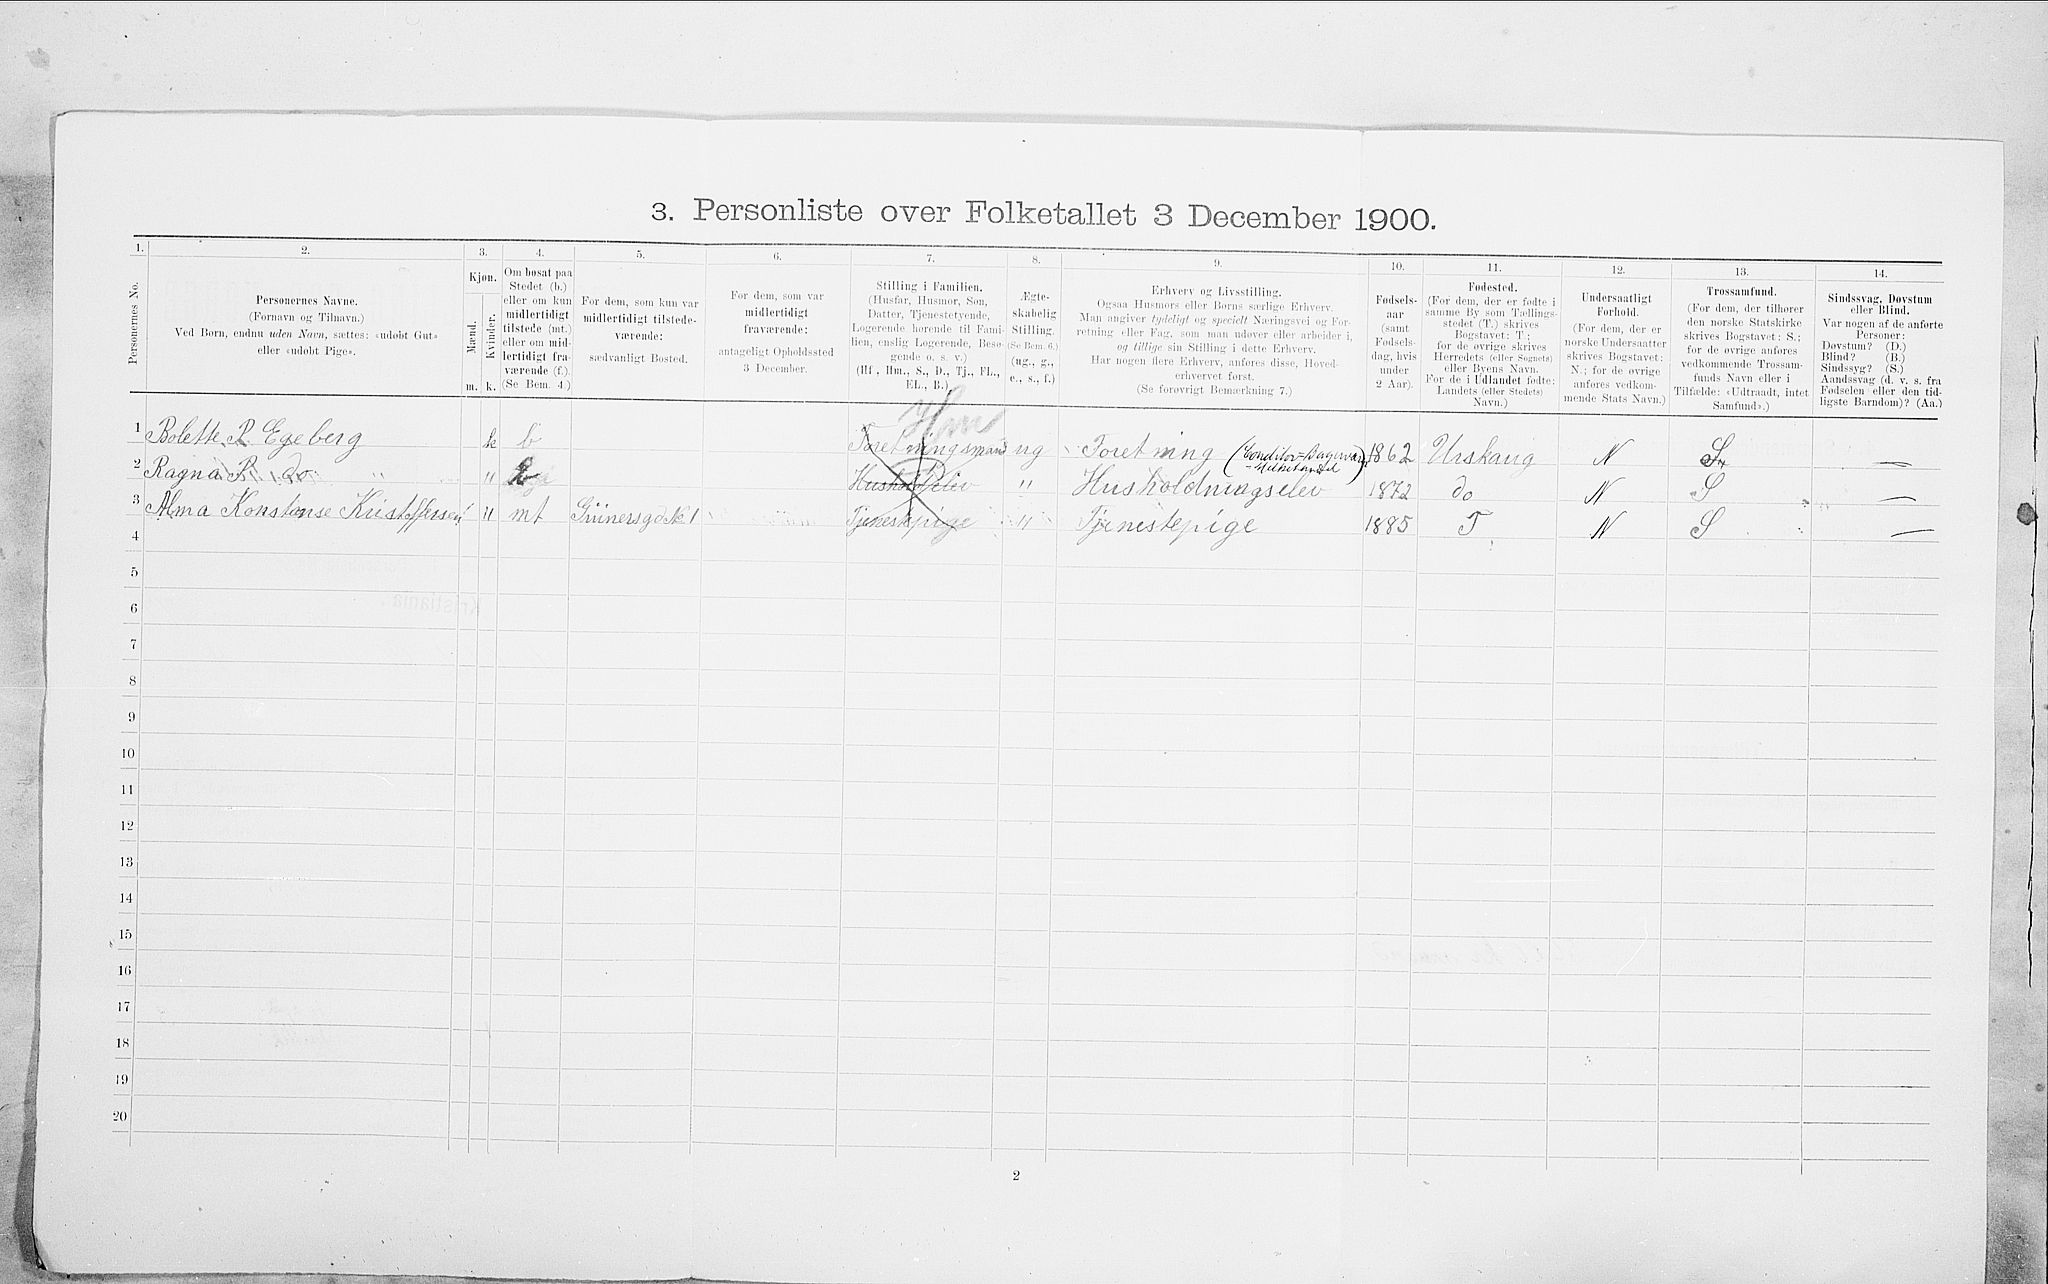 3. Personliste over Folketallet 3 December 1900.
1. 2. 3. 4. 5. 6. 7. 8. 9. 10. 11. 12. 13. 14.
Personernes No.
Personernes Navne.
(Fornavn og Tilnavn.)
Ved Børn, endnu uden Navn, sættes: «udøbt Gut»
eller «udøbt Pige».
Kjøn.
Mænd.
Kvinder.
m. k.
Om bosat paa
Stedet (b.)
eller om kun
midlertidigt
tilstede (mt.)
eller om mid-
lertidigt fra-
værende (f.).
(Se Bem. 4.)
For dem, som kun var
midlertidigt tilstede-
værende:
sædvanligt Bosted.
For dem, som var
midlertidigt
fraværende:
antageligt Opholdssted
3 December.
Stilling i Familien.
(Husfar, Husmor, Søn,
Datter, Tjenestetyende,
Logerende hørende til Fami-
lien, enslig Logerende, Besø-
gende o. s. v.)
(Hf., Hm., S., D., Tj., FL.,
EL., B.)
Ægte-
skabelig
Stilling.
(Se Bem. 6.)
(ug., g.,
e., s., f.)
Erhverv og Livsstilling.
Ogsaa Husmors eller Børns særlige Erhverv.
Man angiver tydeligt og specielt Næringsvei og For-
retning eller Fag, som man udøver eller arbeider i,
og tillige sin Stilling i dette Erhverv.
Har nogen flere Erhverv, anføres disse, Hoved-
erhvervet først.
(Se forøvrigt Bemærkning 7.)
Fødsels-
aar
(samt
Fødsels-
dag, hvis
under
2 Aar).
Fødested.
(For dem, der er fødte i
samme By som Tællings-
stedet (T.) skrives
Bogstavet: T.;
for de øvrige skrives
Herredets (eller Sognets)
eller Byens Navn.
For de i Udlandet fødte:
Landets (eller Stedets)
Navn.)
Undersaatligt
Forhold.
(For dem, der er
norske Undersaatter
skrives Bogstavet:
N.; for de øvrige
anføres vedkom-
mende Stats Navn.)
Trossamfund.
(For dem, der tilhører
den norske Statskirke
skrives Bogstavet: S.;
for de øvrige anføres
vedkommende Trossam-
funds Navn eller i
Tilfælde: «Udtraadt, intet
Samfund».)
Sindssvag, Døvstum
eller Blind.
Var nogen af de anførte
Personer:
Døvstum? (D.)
Blind? (B.)
Sindssyg? (S.)
Aandssvag (d. v. s. fra
Fødselen eller den tid-
ligste Barndom)? (Aa.)
Hm
1 Bolette P. Egeberg k b Foretningsmand ug Foretning (Conditor-Bagervare 1862 Urskaug N S —
-Melketandel
2 Ragna P. do " b Husholdelev " Husholdningselev 1872 do N S —
3 Alma Konstanse Kristoffersen " mt Grünersgd № 1 Tjenestepige " Tjenestepige 1885 T N S —
4
5
6
7
8
9
10
11
12
13
14
15
16
17
18
19
20
2